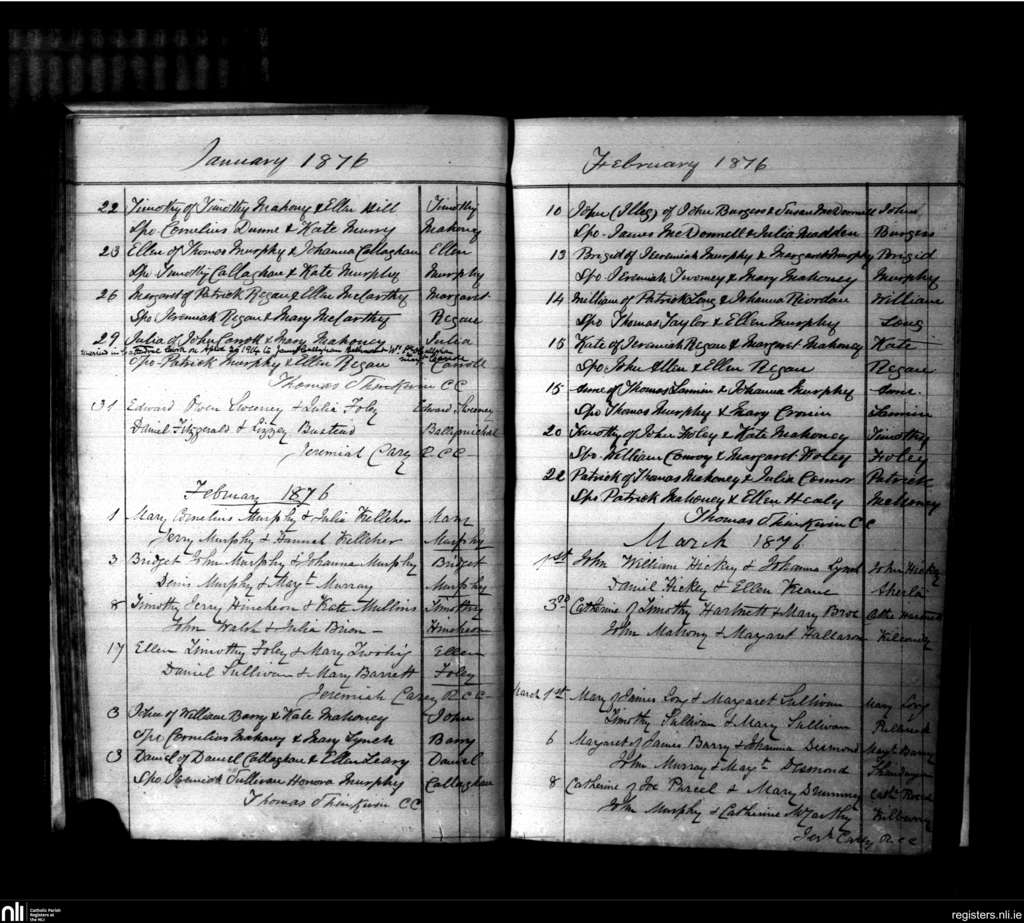 January 1876
22 Timothy of Timothy Mahony & Ellen Hill Timothy
Spo Cornelius Dunne & Kate Murry Mahoney
23 Ellen of Thomas Murphy & Johanna Callaghan Ellen
Spo Timothy Callaghan & Kate Murphy Murphy
26 Margaret of Patrick Regan & Ellen McCarthy Margaret
Spo Jeremiah Regan & Mary McCarthy Regan
29 Julia of John Carroll & Mary Mahoney Julia
married in Cathedral on April 1914 to James
Spo Patrick Murphy & Ellen Regan Carroll
Thomas Shinkwin CC
31 Edward Owen Sweeney & Julia Foley Edward Sweeney
Daniel Fitzgerald & Lizzey Busteed
Jeremiah Carey R.C.C.
February 1876
1 Mary Cornelius Murphy & Julia Kelleher Mary
Jerry Murphy & Hannah Kelleher Murphy
3 Bridget John Murphy & Johanna Murphy Bridget
Denis Murphy & Mayt Murray Murphy
8 Timothy Jerry Hincheon & Kate Mullins Timothy
John Walsh & Julia Brien Hincheon
17 Ellen Timothy Foley & Mary Twohig Ellen
Daniel Sullivan & Mary Barrett Foley
Jeremiah Carey R.C.C.
3 John of William Barry & Kate Mahoney John
Spo Cornelius Mahony & Mary Lynch Barry
13 Daniel of Daniel Callaghan & Ellen Leary Daniel
Spo Jeremiah Sullivan Honora Murphy Callaghan
Thomas Shinkwin CC
February 1876
10 John (Illeg) of John Burgess & Susan McDonnell John
Spo James McDonnell & Julia Madden Burgess
13 Brigid of Jeremiah Murphy & Margaret Murphy Brigid
Spo Jeremiah Twomey & Mary Mahoney Murphy
14 William of Patrick Long & Johanna Riordan William
Spo Thomas Taylor & Ellen Murphy Long
15 Kate of Jeremiah Regan & Margaret Mahoney Kate
Spo John Allen & Ellen Regan Regan
15 of Thomas & Johanna Murphy
Spo Thomas Murphy & Mary Cronin
20 Timothy of John Foley & Kate Mahoney Timothy
Spo William Conroy & Margaret Foley Foley
22 Patrick of Thomas Mahoney & Julia Connor Patrick
Spo Patrick Mahoney & Ellen Healy Mahoney
Thomas Shinkwin CC
March 1876
1st John William Hickey & Johanna Lynch John Hickey
Daniel Hickey & Ellen Keane
3rd Catherine of Timothy Hartnett & Mary Broe
John Mahony & Margaret Halloran
March 1st Mary of James Long & Margaret Sullivan Mary Long
Timothy Sullivan & Mary Sullivan
6 Margaret of James Barry & Johanna Desmond Mayt Barry
John Murray & Mayt Desmond
8 Catherine of Joe Purcel & Mary Drummey
John Murphy & Catherine McCarthy
Jerh Carey R.C.C.
nli
Catholic Parish
Registers at
the NLI
registers.nli.ie